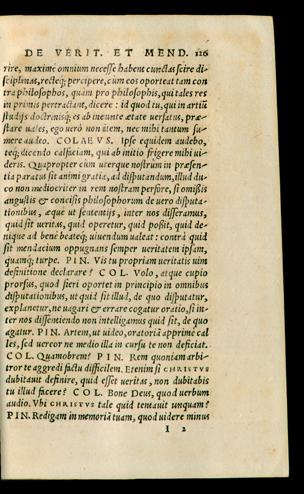 DE VERIT. ET MEND. 116
rire, maximè omnium necesse habent cunctas scire di-
sciplinas, rectéq; percipere, cùm eos oporteat tam con
tra philosophos, quàm pro philosophis, qui tales res
in primis pertractant, dicere: id quod tu, qui in artiũ
studijs doctrinisq; es ab ineunte ætate uersatus, præ-
stare uales, ego uerò non item, nec mihi tantum su-
mere audeo. COLAEVS. Ipse equidem audebo,
teq; dicendo calfaciam, qui ab initio frigere mihi ui-
deris. Quapropter cùm uterque nostrum in præsen-
tia paratus sit animi gratia, ad disputandum, illud du-
co non mediocriter in rem nostram perfore, si omißis
angustis & concisis philosophorum de uero disputa-
tionibus, æquè ut sententijs, inter nos disseramus,
quid sit ueritas, quid operetur, quid poßit, quid de-
nique ad benè beatéq; uiuendum ualeat: contrà quid
sit mendacium oppugnans semper ueritatem ipsam,
quamq; turpe. PIN. Vis tu propriam ueritatis uim
definitione declarare? COL. Volo, atque cupio
prorsus, quod fieri oportet in principio in omnibus
disputationibus, ut quid sit illud, de quo disputatur,
explanetur, ne uagari & errare cogatur oratio, si in-
ter nos dissentiendo non intelligamus quid sit, de quo
agatur. PIN. Artem, ut uideo, oratoriã apprimè cal
les, sed uereor ne medio illa in cursu te non deficiat.
COL. Quamobrem? PIN. Rem quoniam arbi-
tror te aggredi factu difficilem. Etenim si CHRISTVS
dubitauit definire, quid esset ueritas, non dubitabis
tu illud facere? COL. Bone Deus, quod uerbum
audio. Vbi CHRISTVS tale quid tentauit unquam?
PIN. Redigam in memoriã tuam, quod uidere minus
I 2